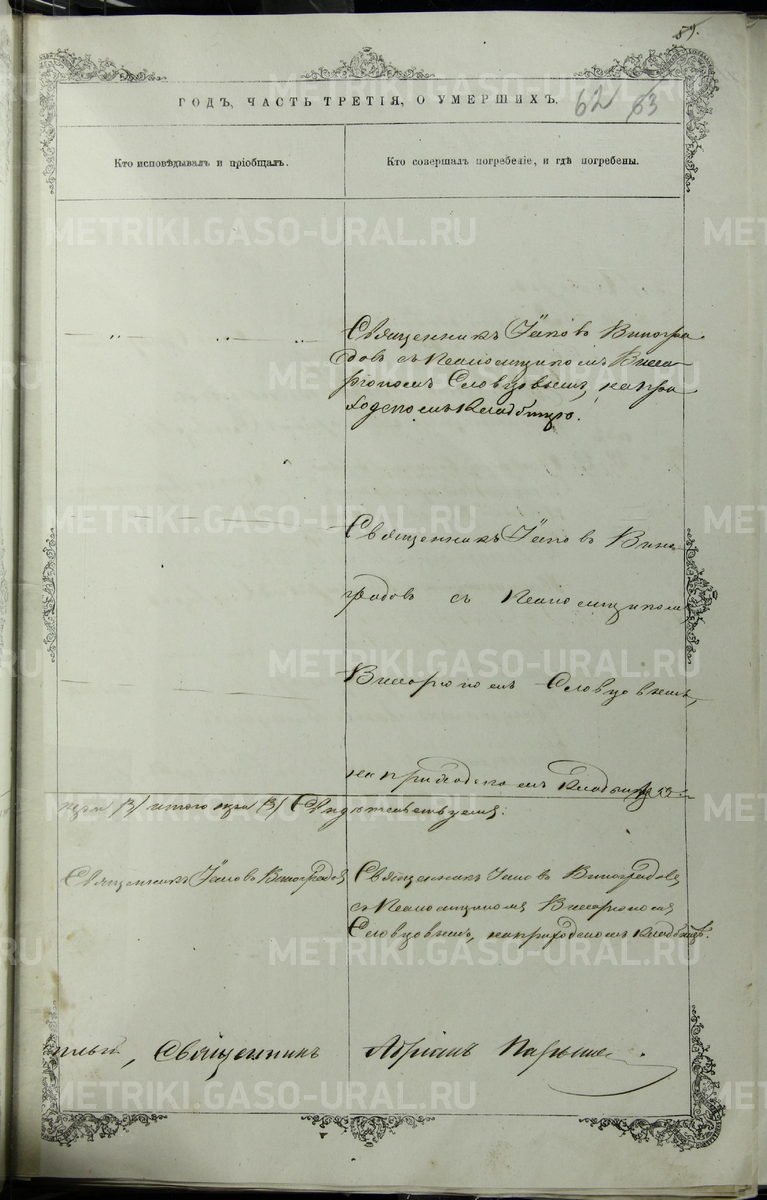 59.
ГОДЪ, ЧАСТЬ ТРЕТІЯ, О УМЕРШИХЪ. 62 63
Кто исповѣдывалъ и пріобщалъ.
Кто совершалъ погребеніе, и гдѣ погребены.
Священникъ Іаковъ Виногра
довъ съ Псаломщикомъ Висса
ріономъ Словцовымъ, на при
ходскомъ кладбищѣ.
Священникъ Іаковъ Вино
градовъ съ Псаломщикомъ
Виссаріономъ Словцовымъ,
на приходскомъ кладбищѣ
итого Свидѣтельствуемъ:
Священникъ Іаковъ Виноградовъ
Священникъ Іаковъ Виноградовъ
съ Псаломщикомъ Виссаріономъ
Словцовымъ, на приходскомъ кладбищѣ.
Священникъ Адріанъ
METRIKI.GASO-URAL.RU